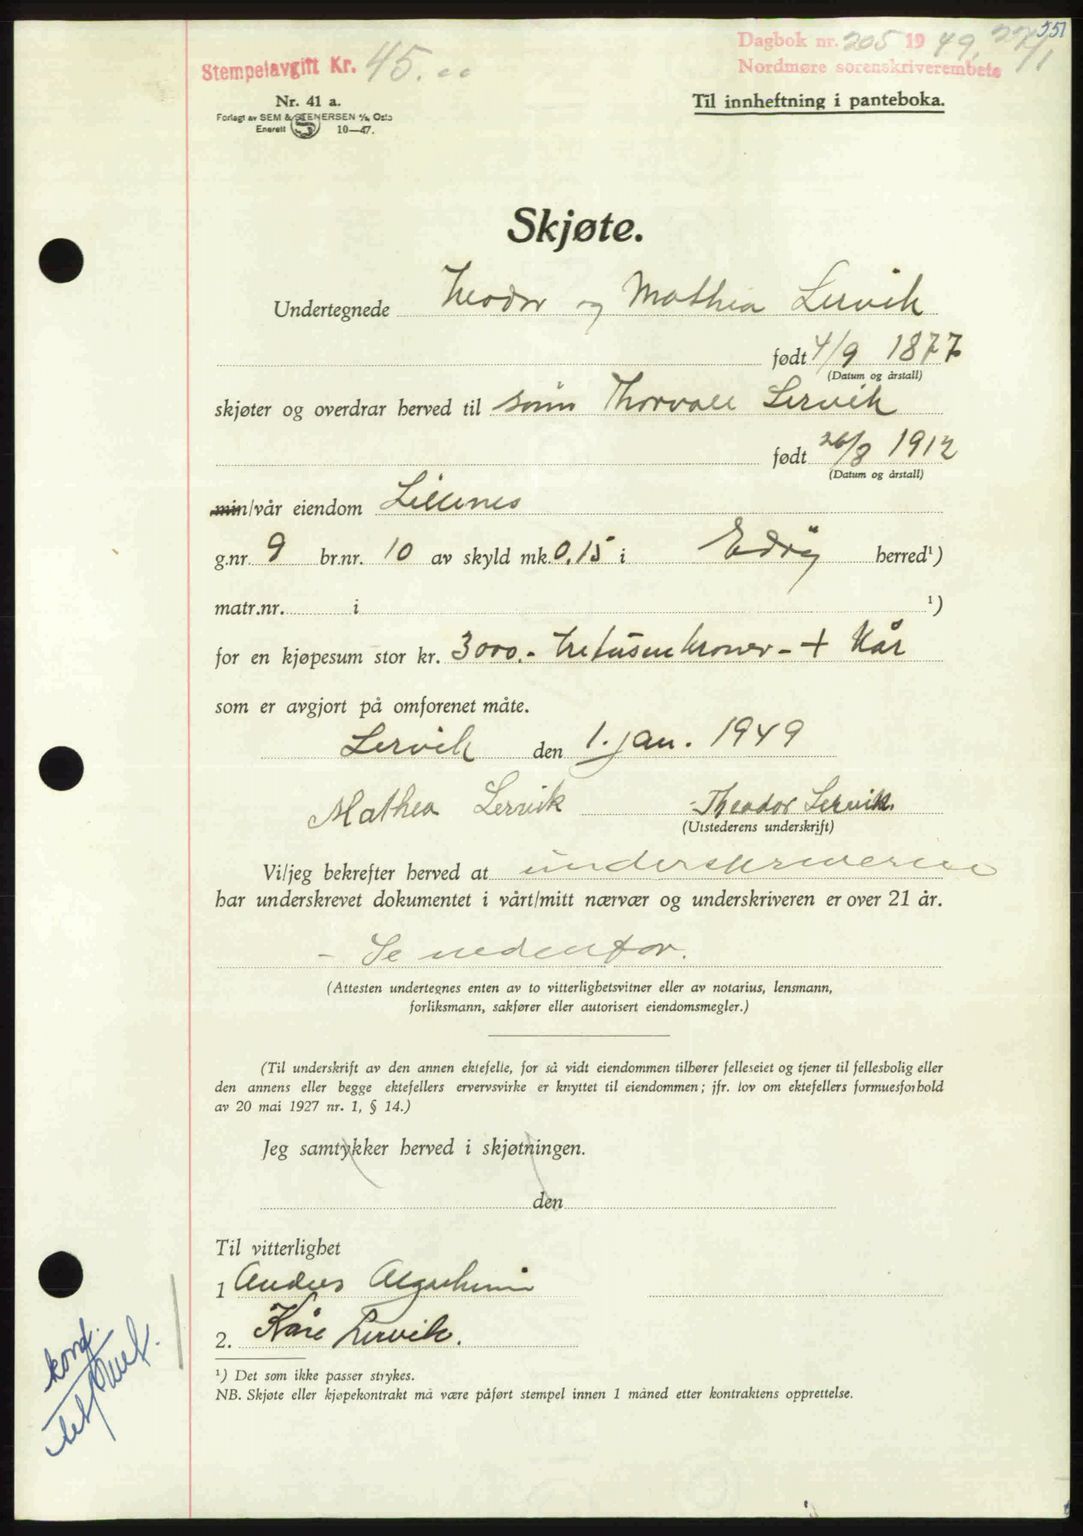 551
Dagbok nr. 205 1949, 27/1
Nordmøre sorenskriverembete
Stempelavgift Kr. 45.00
Nr. 41 a.
Forlagt av SEM & STENERSEN A/S, Oslo
Enerett S 10—47.
Til innheftning i panteboka.
Skjøte.
Undertegnede Theodor og Mathea Lervik
født 4/9 1877
(Datum og årstall)
skjøter og overdrar herved til sønn Thorvall Lervik
født 26/8 1912
(Datum og årstall)
min/vår eiendom Lillenes
g.nr. 9 br.nr. 10 av skyld mk. 0,15 i Edøy herred¹)
matr.nr. i ¹)
for en kjøpesum stor kr. 3000.- tretusenkroner - + kår
som er avgjort på omforenet måte.
Lervik den 1. jan. 1949
Mathea Lervik Theodor Lervik
(Utstederens underskrift)
Vi/jeg bekrefter herved at underskriverne
har underskrevet dokumentet i vårt/mitt nærvær og underskriveren er over 21 år.
- Se nedenfor.
(Attesten undertegnes enten av to vitterlighetsvitner eller av notarius, lensmann,
forliksmann, sakfører eller autorisert eiendomsmegler.)
(Til underskrift av den annen ektefelle, for så vidt eiendommen tilhører felleseiet og tjener til fellesbolig eller
den annens eller begge ektefellers ervervsvirke er knyttet til eiendommen; jfr. lov om ektefellers formuesforhold
av 20 mai 1927 nr. 1, § 14.)
Jeg samtykker herved i skjøtningen.
den
Til vitterlighet
1 Anders
2. Kåre Lervik.
¹) Det som ikke passer strykes.
NB. Skjøte eller kjøpekontrakt må være påført stempel innen 1 måned etter kontraktens opprettelse.
konf.